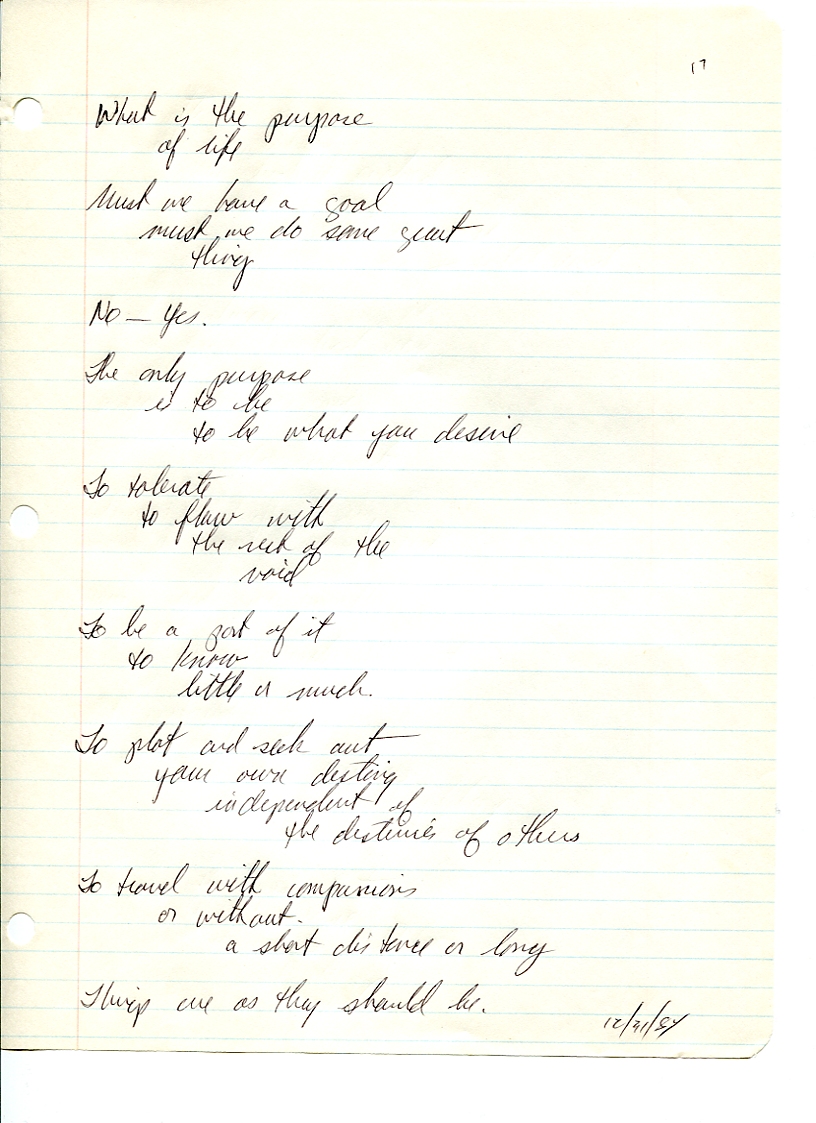 17
What is the purpose
of life
Must we have a goal
must we do some great
thing
No — Yes.
The only purpose
is to be
to be what you desire
To tolerate
to flow with
the rest of the
void
To be a part of it
to know
little or much.
To plot and seek out
your own destiny
independent of
the destinies of others
To travel with companions
or without.
a short distance or long
Things are as they should be.
12/31/84